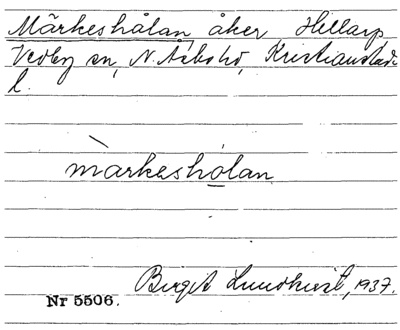 Märkeshålan, åker Hellarp
Vedby sn, N. Åsbo hd, Kristianstads
l.
màrkeshọlan
Birgit Lundkvist, 1937.
Nr 5506.